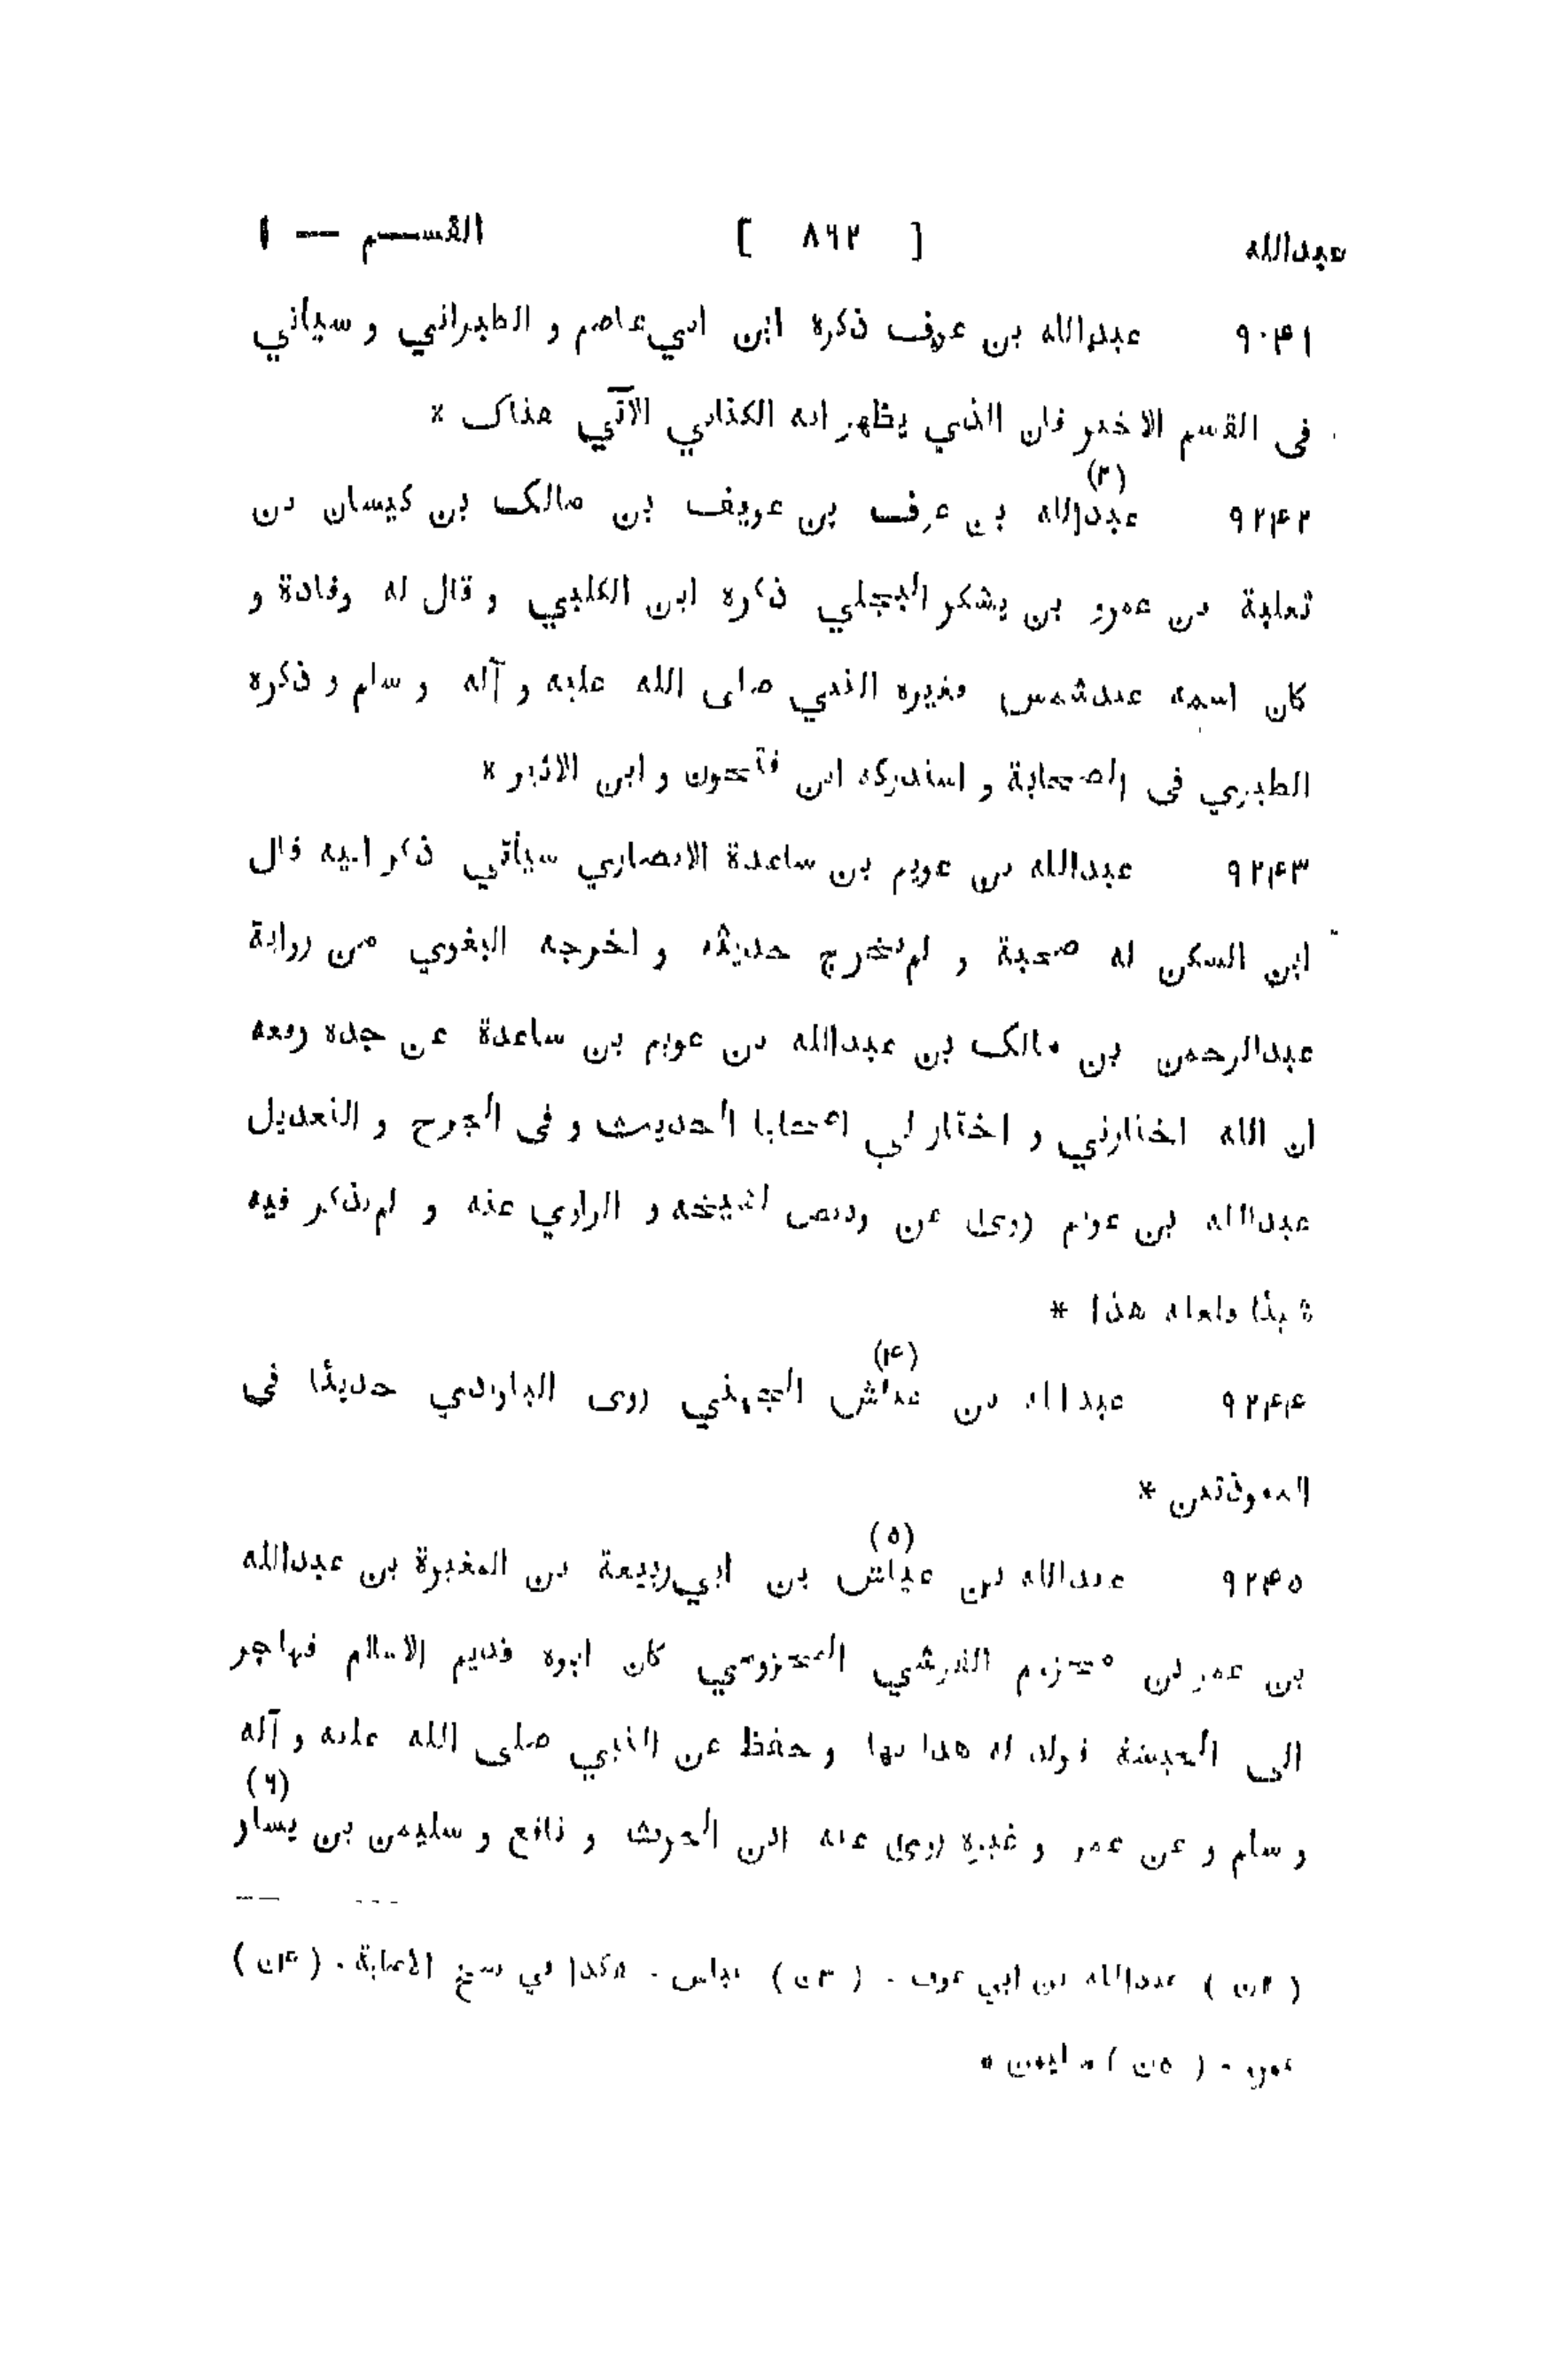 عبدالله [ ٨٦٢ ] القســـم — ١
٩٠۴١ عبدالله بن عوف ذكرة ابن ابي عاصم و الطبراني و سياتي
فى القسم الاخير فان الذي يظهر انه الكناني الآتي هناک *
(٣)
٩٢۴٢ عبدالله بن عوف بن عويف بن مالک بن كيسان بن
ثعلبة بن عمرو بن يشكر البجلي ذكره ابن الكلبي و قال له وفادة و
كان اسمه عبدشمس فغيره النبي صلى الله عليه و آله و سلم و ذكره
الطبري فى الصحابة و استدركه ابن فتحون و ابن الاثير *
٩٢۴٣ عبدالله بن عويم بن ساعدة الانصاري سيأتي ذكر ابيه قال
ابن السكن له صحبة و لم يخرج حديثه و اخرجه البغوي من رواية
عبدالرحمن بن مالک بن عبدالله بن عويم بن ساعدة عن جده رفعه
ان الله اختارني و اختار لي اصحابا الحديث و فى الجرح و التعديل
عبدالله بن عويم روى عن وبيض لشيخه و الراوي عنه و لم يذكر فيه
شيئا ولعله هذا *
(۴)
٩٢۴۴ عبدالله بن عداش الجهني روى الباوردي حديثا فى
المعوذتين *
(٥)
٩٢۴٥ عبدالله بن عياش بن ابي ربيعة بن المغيرة بن عبدالله
بن عمر بن مخزوم القرشي المخزومي كان ابوه قديم الاسلام فهاجر
الى الحبشة فولد له هذا بها و حفظ عن النبي صلى الله عليه و آله
(٦)
و سلم و عن عمر و غيره روى عنه ابن الحرث و نافع و سليمن بن يسار
( ٢ن ) عبدالله بن ابي عوف - ( ٣ن ) عباس - هكذا في نسخ الاصابة - ( ۴ن )
عمرو - ( ٥ن ) سليمن *